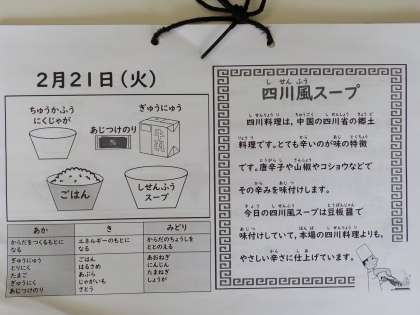 2月21日(火)
ちゅうかふう
にくじゃが
あじつけのり
ぎゅうにゅう
牛乳
ごはん
しせんふう
スープ
あか
き
みどり
からだをつくるもとに
なる
エネルギーのもとに
なる
からだのちょうしを
ととのえる
ぎゅうにゅう
とりにく
たまご
ぎゅうにく
あじつけのり
ごはん
はるさめ
あぶら
じゃがいも
さとう
あおねぎ
にんじん
たまねぎ
しょうが
四川風スープ
四川料理は,中国の四川省の郷土
料理です。とても辛いのが味の特徴
です。唐辛子や山椒やコショウなどで
その辛みを味付けします。
今日の四川風スープは豆板醤で
味付けしていて,本場の四川料理よりも,
やさしい辛さに仕上げています。